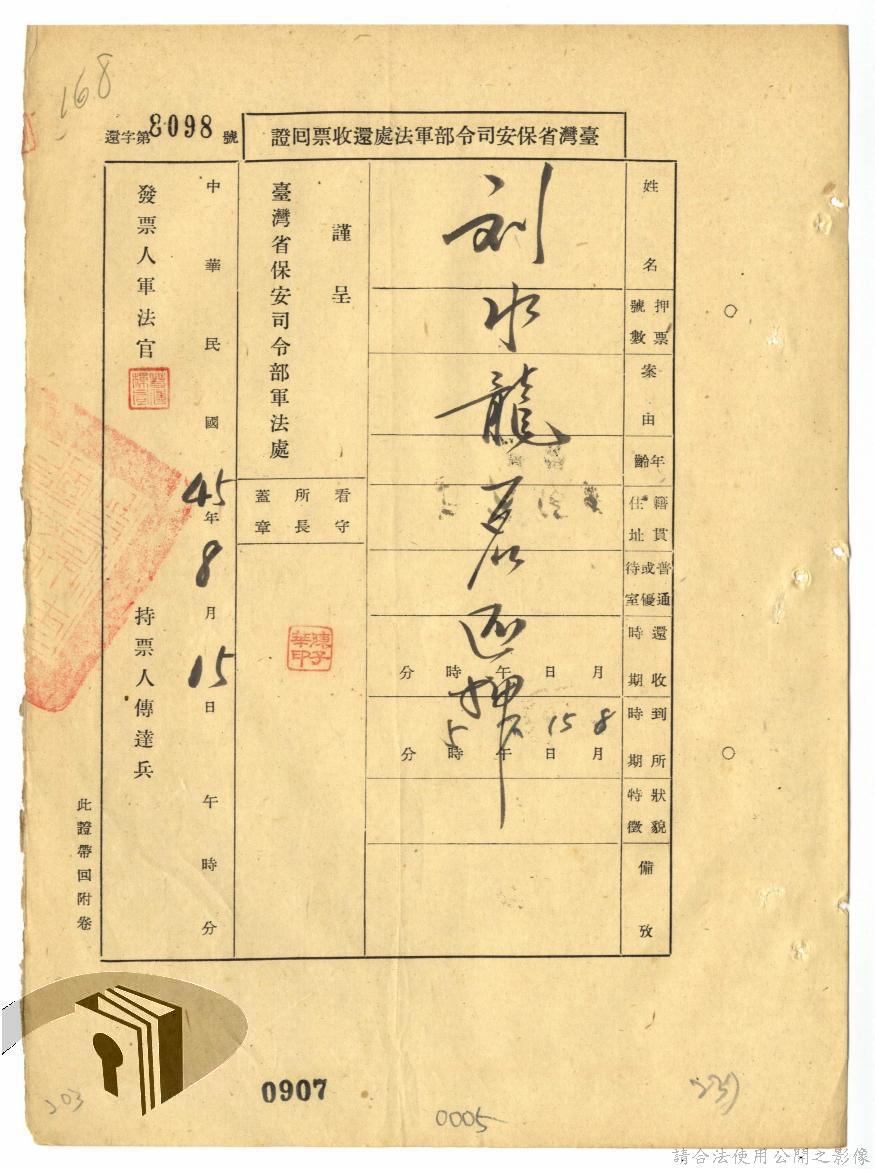 168
臺灣省保安司令部軍法處還收票回證
還字第8098號
姓名
押票號數
案由
年齡
籍貫住址
普通或優待室
還收時期
到所時期
狀貌特徵
備攷
劉水龍君還押
月日午時分
8月15日午5時分
謹呈
臺灣省保安司令部軍法處
看守所長蓋章
陳子華印
中華民國45年8月15日午時分
發票人軍法官
持票人傳達兵
此證帶回附卷
203
0907
0005
請合法使用公開之影像